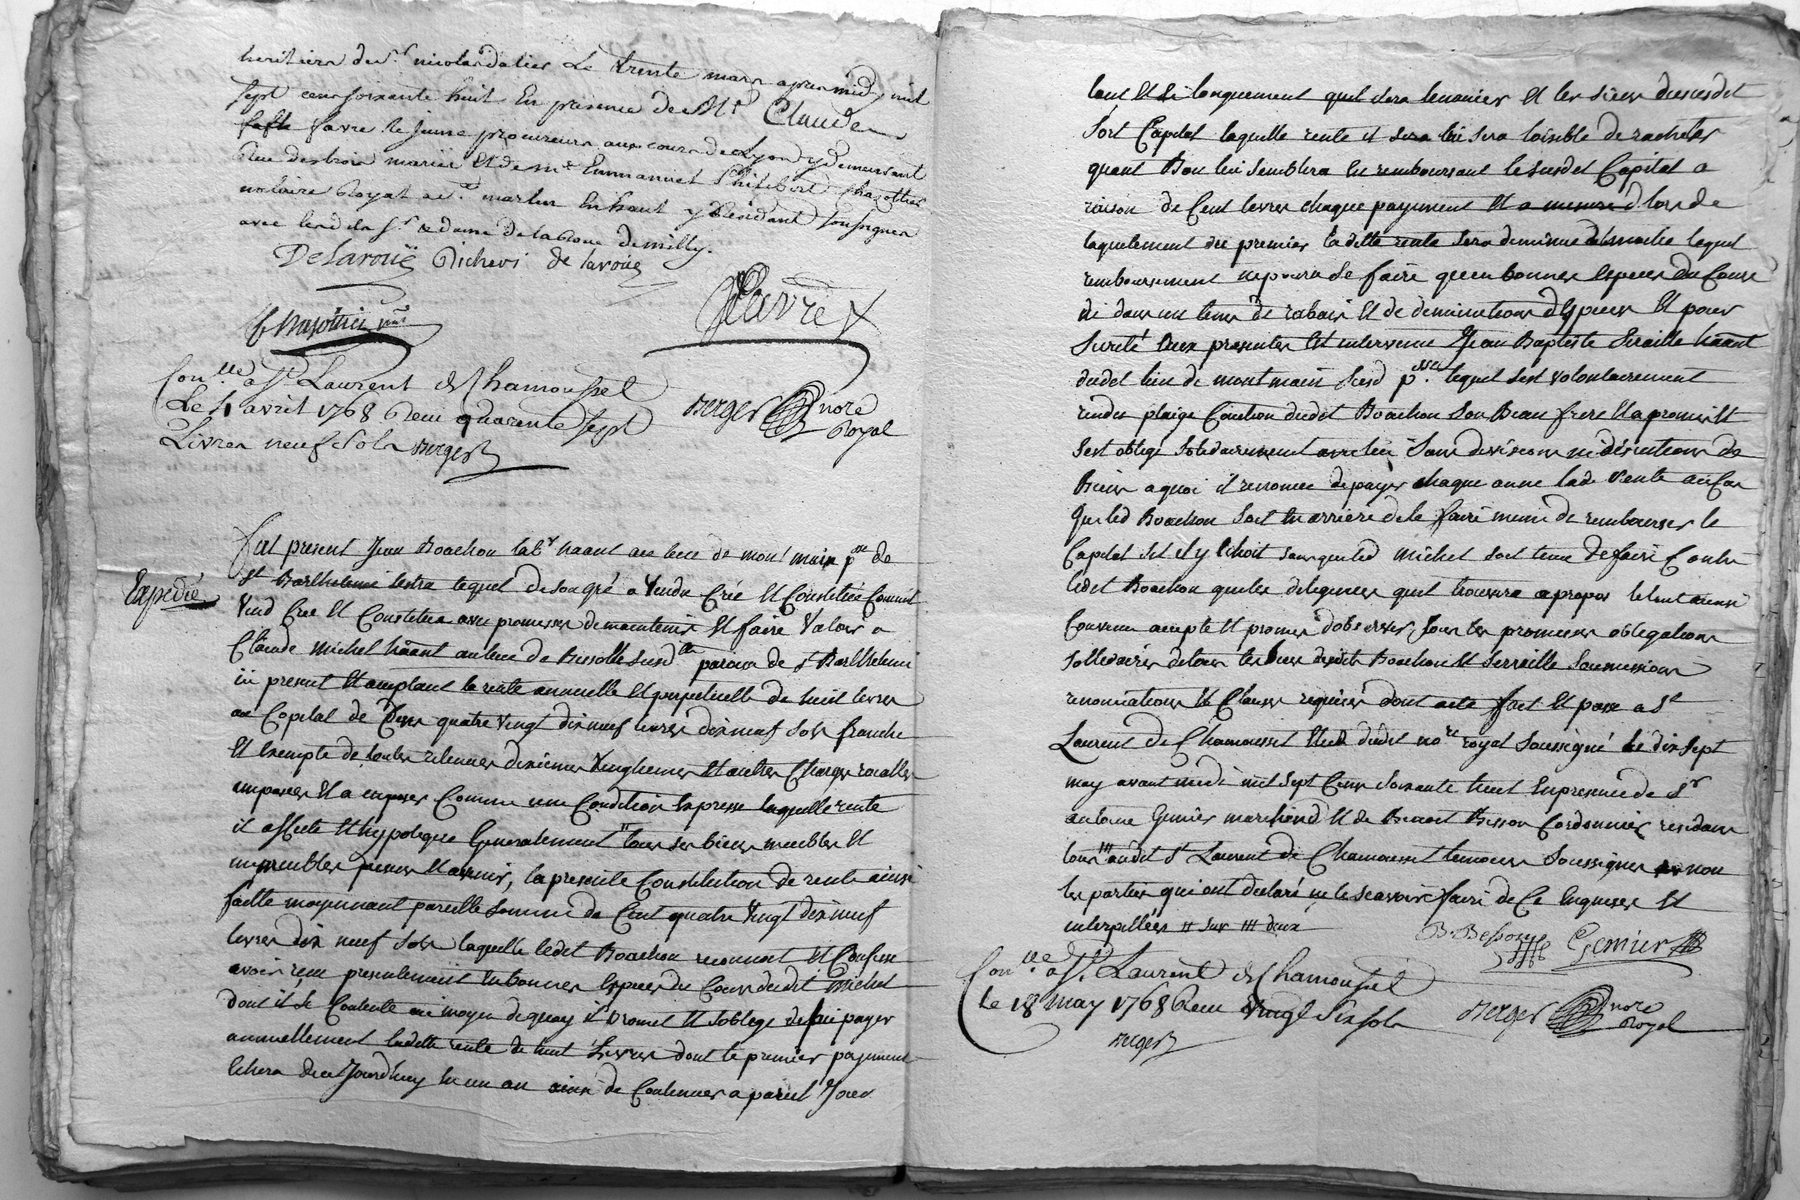 heritiers du s.r nicolas dalier Le trente mars apres midy mil
sept cens soixante huit En presence de M.e Claude
favre le jeune procureur aux cours de Lyon y demeurant
Rue des trois maries Et de m.e Emmanuel Philibert Chazottier
notaire Royal a s.t martin En haut y Residant soussignes
avec lesdits s.r & dame de la Roue de milly.
DeLaroüe Richeri de laroüe
Favre
Chazottier n.re
Con.lle a S.t Laurent de Chamousset
Le 1 avril 1768 Reçu quarente sept
Livres neuf sols Berger
Berger nore Royal
Expedié
fut present Jean Boachon lab.r haant au lieu de mont main p.sse de
S.t Barthelemi lestra lequel de son gré a Vendu Créé Et Constitué Comme
Vend Crée Et Constitue avec promesse de maintenir Et faire Valoir a
Claude michel haant au lieu de Bissolle susd.tte paroisse de s.t Barthelemi
ici present Et acceptant la rente annuelle Et perpetuelle de huit livres
au Capital de Cent quatre Vingt dix neuf livres dix neuf sols franche
Et Exempte de toutes retenues dixiemes Vingtiemes Et autres Charges roialles
imposées Et a imposer Comme une Condition Expresse laquelle rente
il affecte Et hypoteque Generalement " tous ses biens meubles Et
immeubles presens Et avenir, la presente Constitution de rente ainsi
faitte moyennant pareille somme de Cent quatre Vingt dix neuf
livres dix neuf sols laquelle ledit Boachon reconnoit Et Confesse
avoir reçu presentement En bonnes Especes du Cours dudit michel
dont il se Contente au moyen de quoy il promet Et s'oblige de lui payer
annuellement ladette rente de huit Livres dont le premier payement
Echera de ce Jourdhuy En un an ainsi de Continuer a pareil Jour
tant Et si longuement quil sera tenancier Et les siens dususdit
sort Capital laquelle rente il sera lui sera loisible de racheter
quant Bon lui semblera En remboursant le susdit Capital a
raison de Cent livres chaque payement Et a mesure d. lors de
laquitement du premier ladette rente sera diminuée de la moitié lequel
remboursement ne poura se faire qu'en bonnes Especes du Cours
ni dans un tems de rabais Et de diminutions d'Especes Et pour
sureté Aux presentes Est intervenu Jean Baptiste Seraille haant
dudit lieu de montmain susd p.sse lequel sest volontairement
rendu pleige Caution dudit Boachon son Beau frere Et a promis Et
sest obligé solidairement avec lui sans division ni discution de
Biens a quoi il renonce de payer chaque année lad. Rente au Cas
que led Boachon soit En arriere de le faire meme de rembourser le
Capital sil s'y Echoit sans que led michel soit tenu de faire Contre
ledit Boachon que les diligences quil trouvera a propos le tout ainsi
Convenu accepté Et promis d'observer, sous les promesses obligations
sollidaires de tous les biens desdits Boachon Et Serraille soumissions
renonciations Et Clauses requises dont acte fait Et passé a S.t
Laurent de Chamousset Etude dudit no.re royal soussigné Le dix sept
may avant midi mil sept Cens soixante huit En presence de S.r
antoine Gemier marchend Et de Benoit Besson Cordonnier residans
tous ''' audit S.t Laurent de Chamousset temoins soussignes non
les parties qui ont declaré ne le scavoir faire de Ce Enquises Et
interpellées " sur ''' deux
B. Besson Gemier
Con.lle a S.t Laurent de Chamousset
Le 18 may 1768 Reçu Vingt six sols
Berger
Berger nore Royal